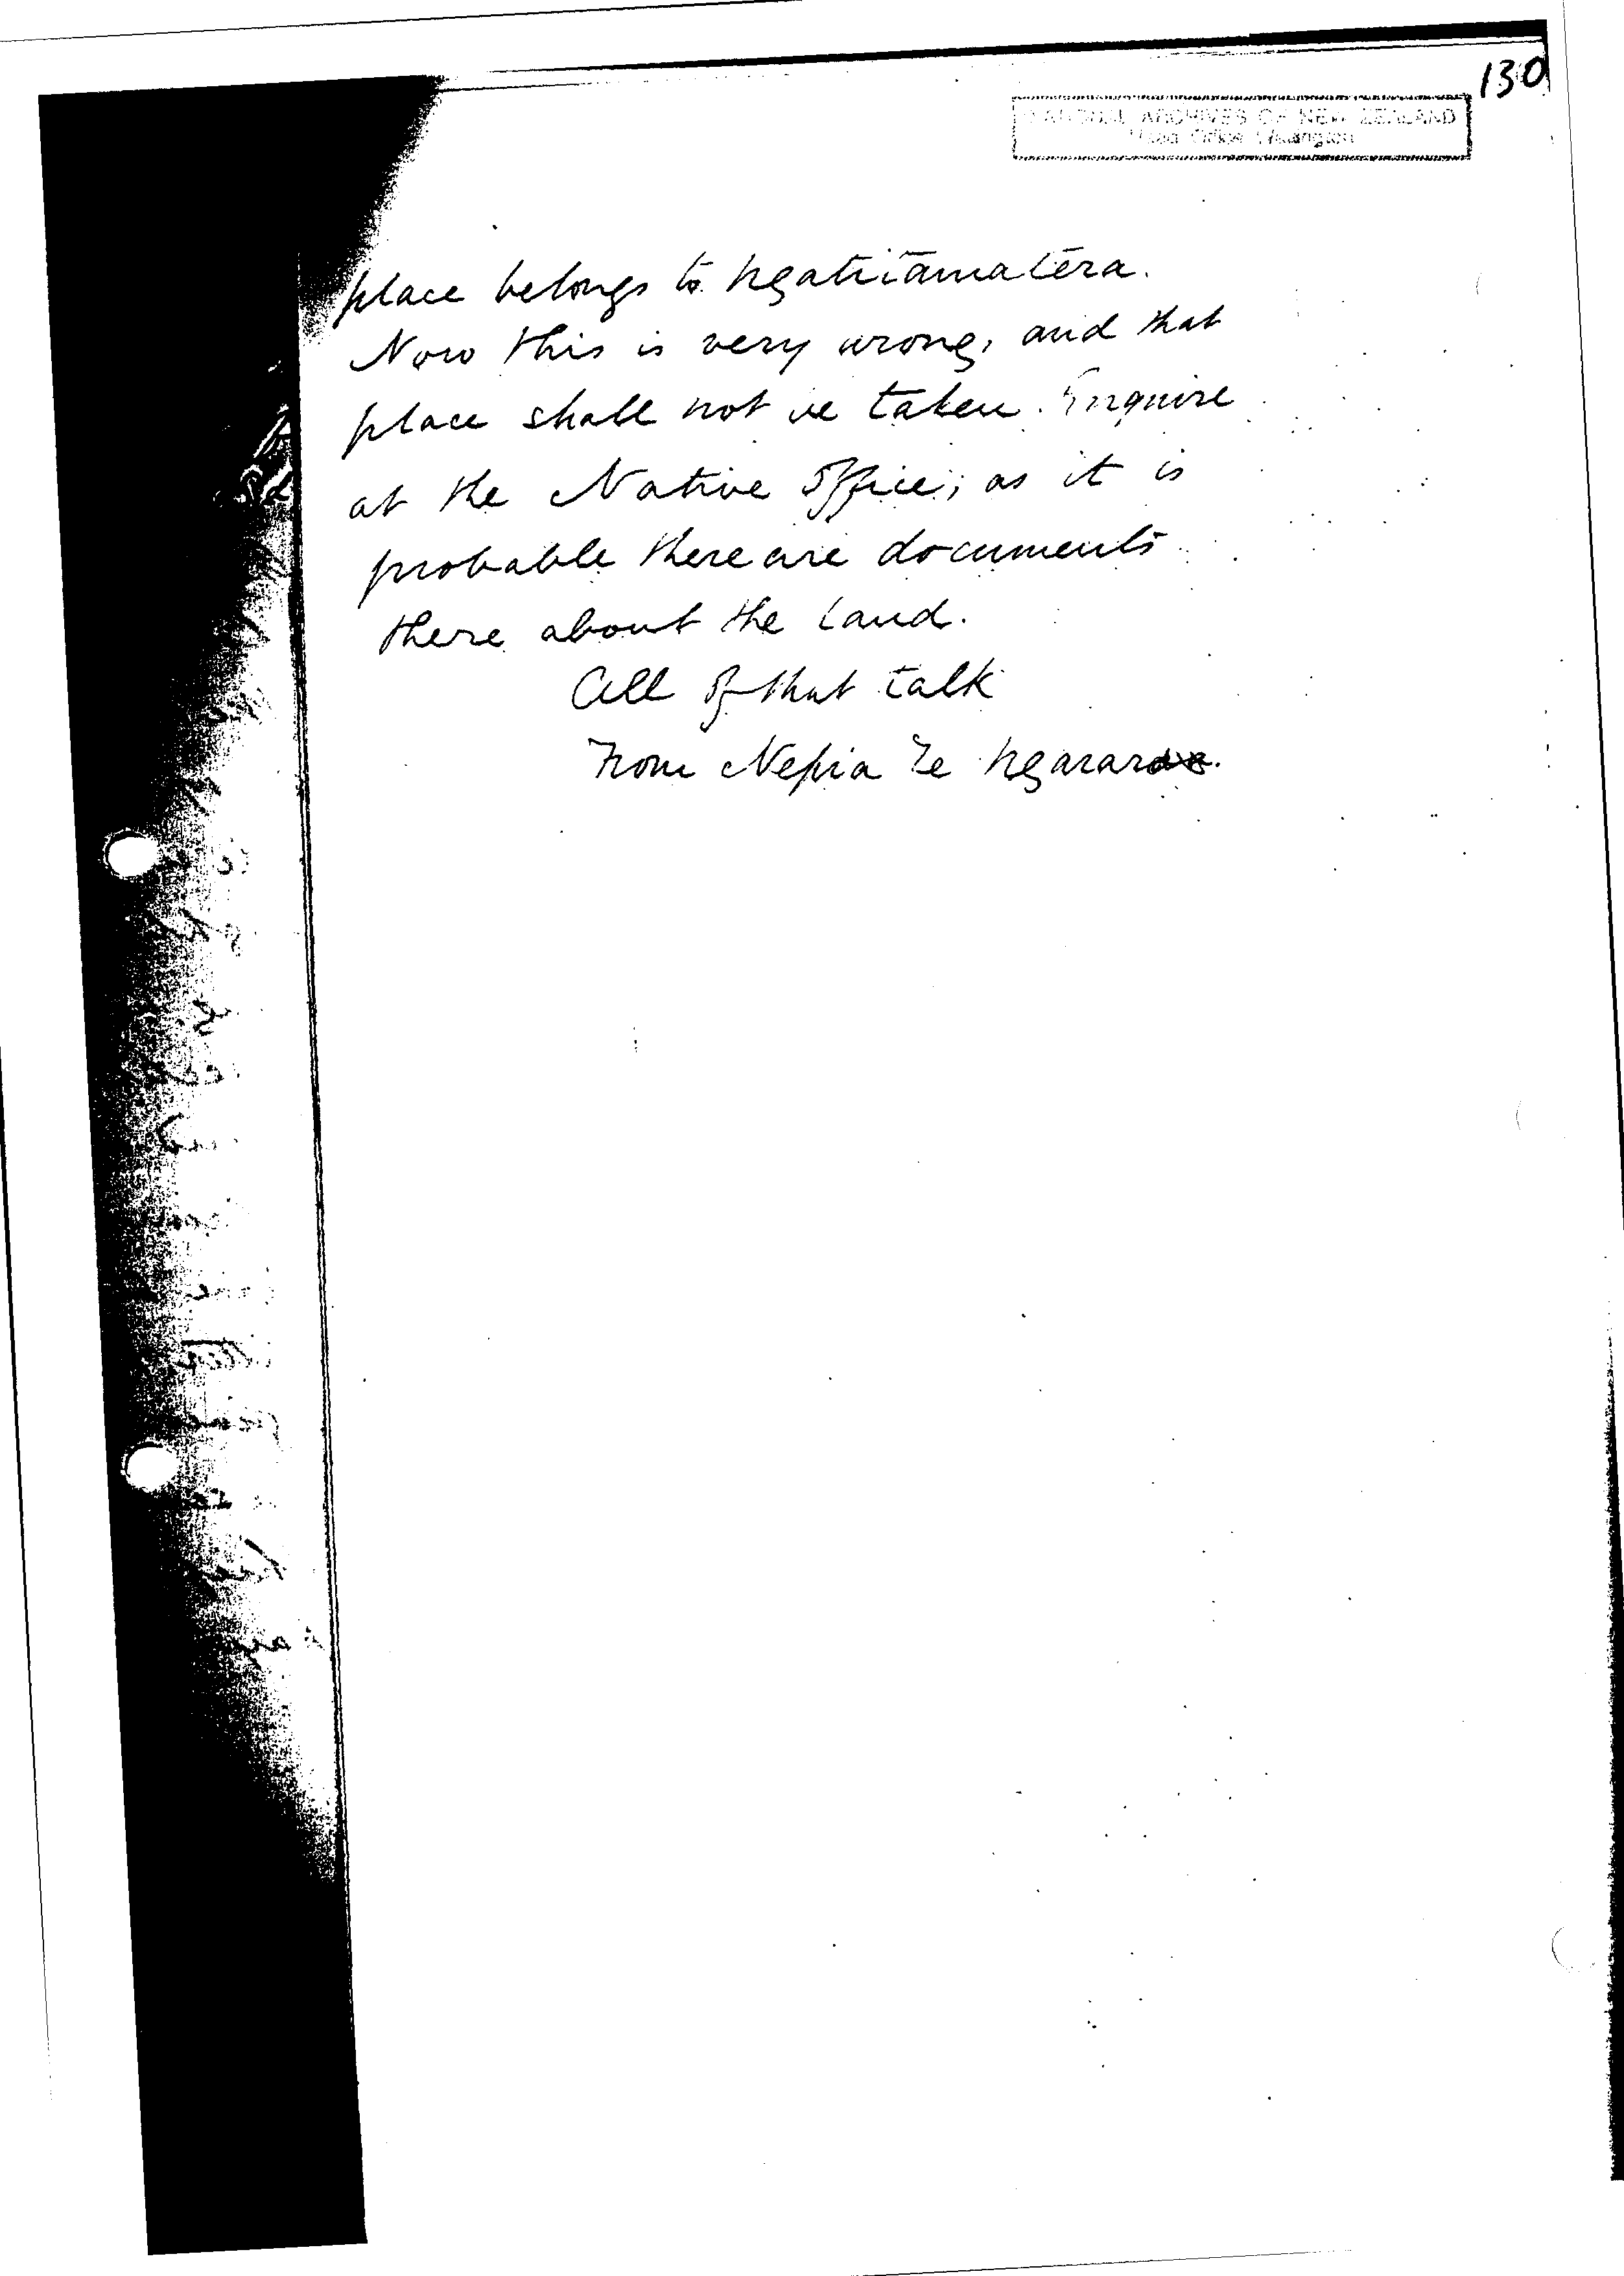 130
NATIONAL ARCHIVES OF NEW ZEALAND
Head Office Wellington
place belongs to Ngatitamatera.
Now this is very wrong, and that
place shall not be taken. Enquire
at the Native Office; as it is
probable there are documents
there about the land.
All of that talk
From Nepia Te Ngarara.